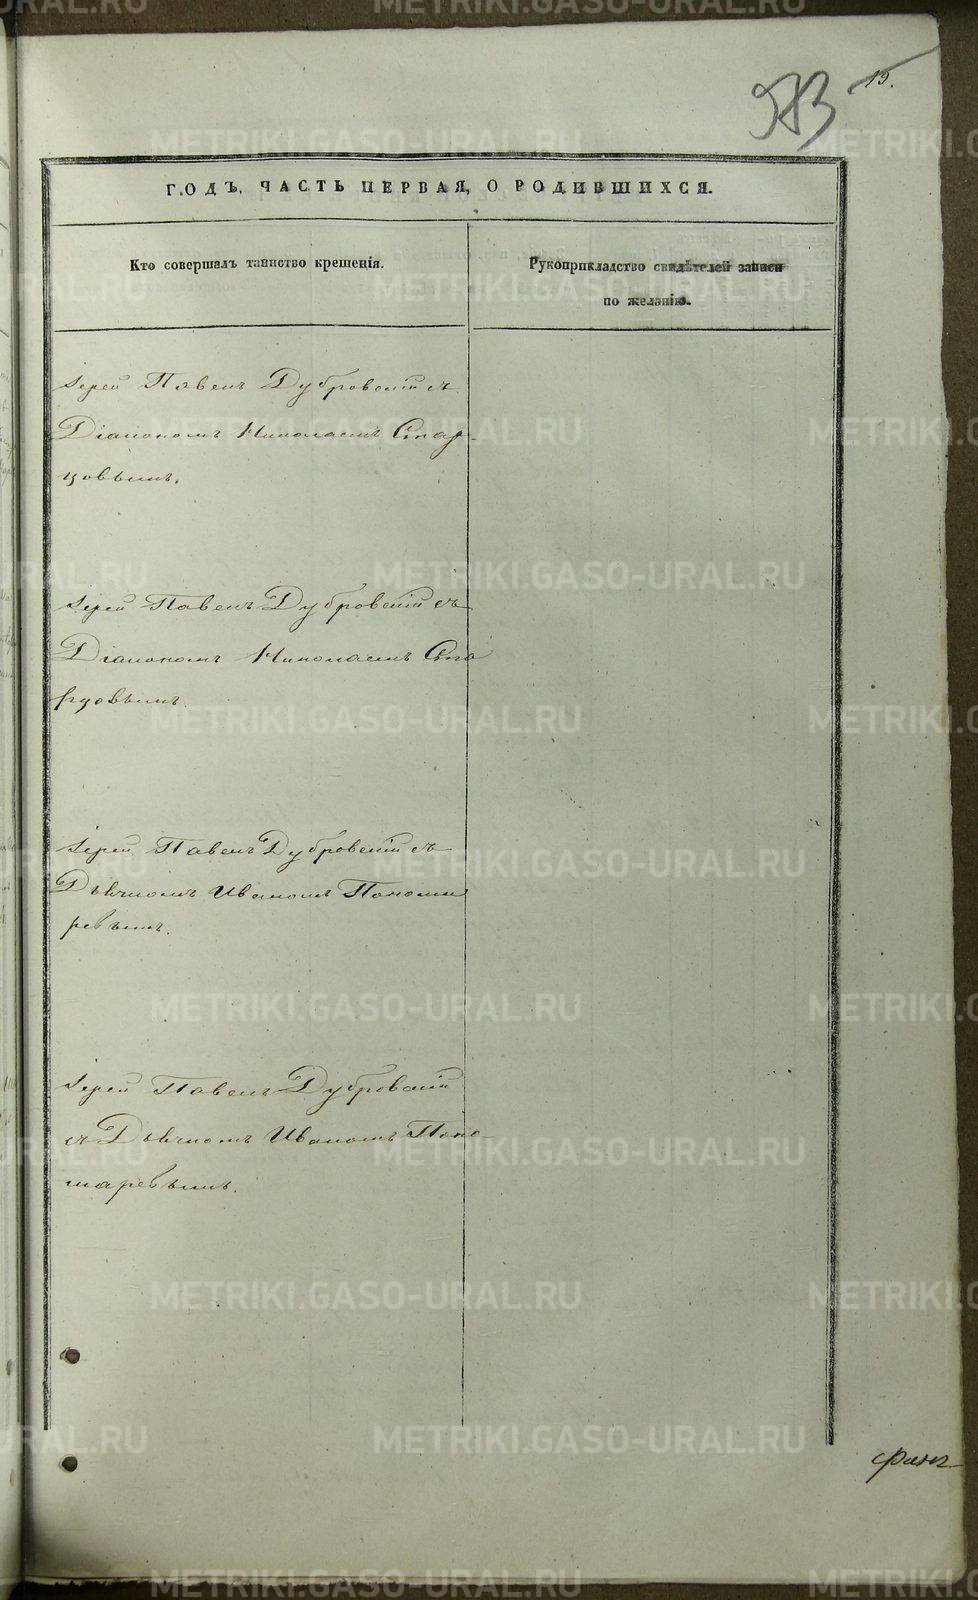 METRIKI.GASO-URAL.RU
583
15.
ГОДЪ, ЧАСТЬ ПЕРВАЯ, О РОДИВШИХСЯ.
Кто совершалъ таинство крещенія.
Рукоприкладство свидѣтелей записи
по желанію.
Іерей Павелъ Дубровскій съ
Діакономъ Николаемъ Спар-
цовымъ.
Іерей Павелъ Дубровскій съ
Діакономъ Николаемъ Спа
рцовымъ.
Іерей Павелъ Дубровскій съ
Дьячкомъ Иваномъ Понома
ревымъ.
Іерей Павелъ Дубровскій
съ Дьячкомъ Иваномъ Поно-
маревымъ.